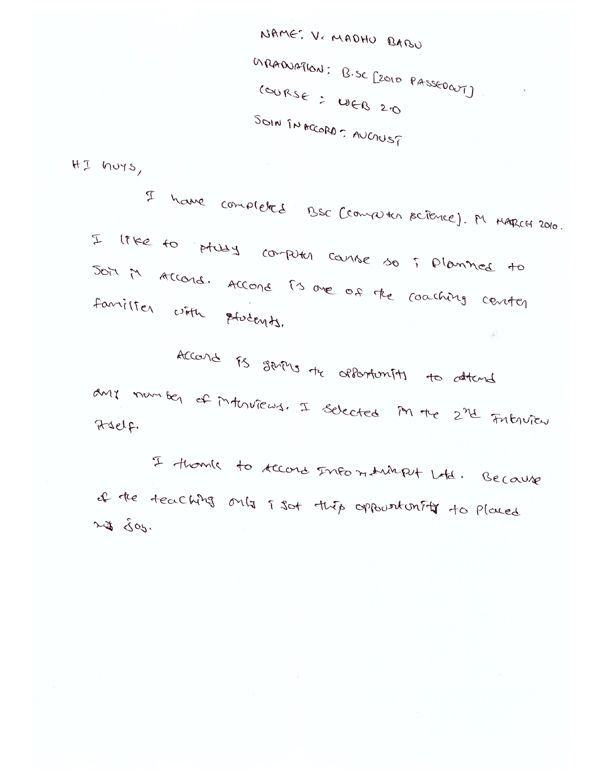 NAME: V. MADHU BABU
GRADUATION: B.SC [2010 PASSEDOUT]
COURSE: WEB 2.0
JOIN IN ACCORD: AUGUST
HI GUYS,
I have completed BSC [computer science]. in MARCH 2010.
I like to study computer course so i planned to
join in Accord. Accord is one of the coaching center
familier with students.
Accord is giving the opportunity to attend
any number of interviews. I selected in the 2nd Interview
itself.
I thank to Accord Info Ltd. Because
of the teaching only i got this oppourtunity to placed
job.